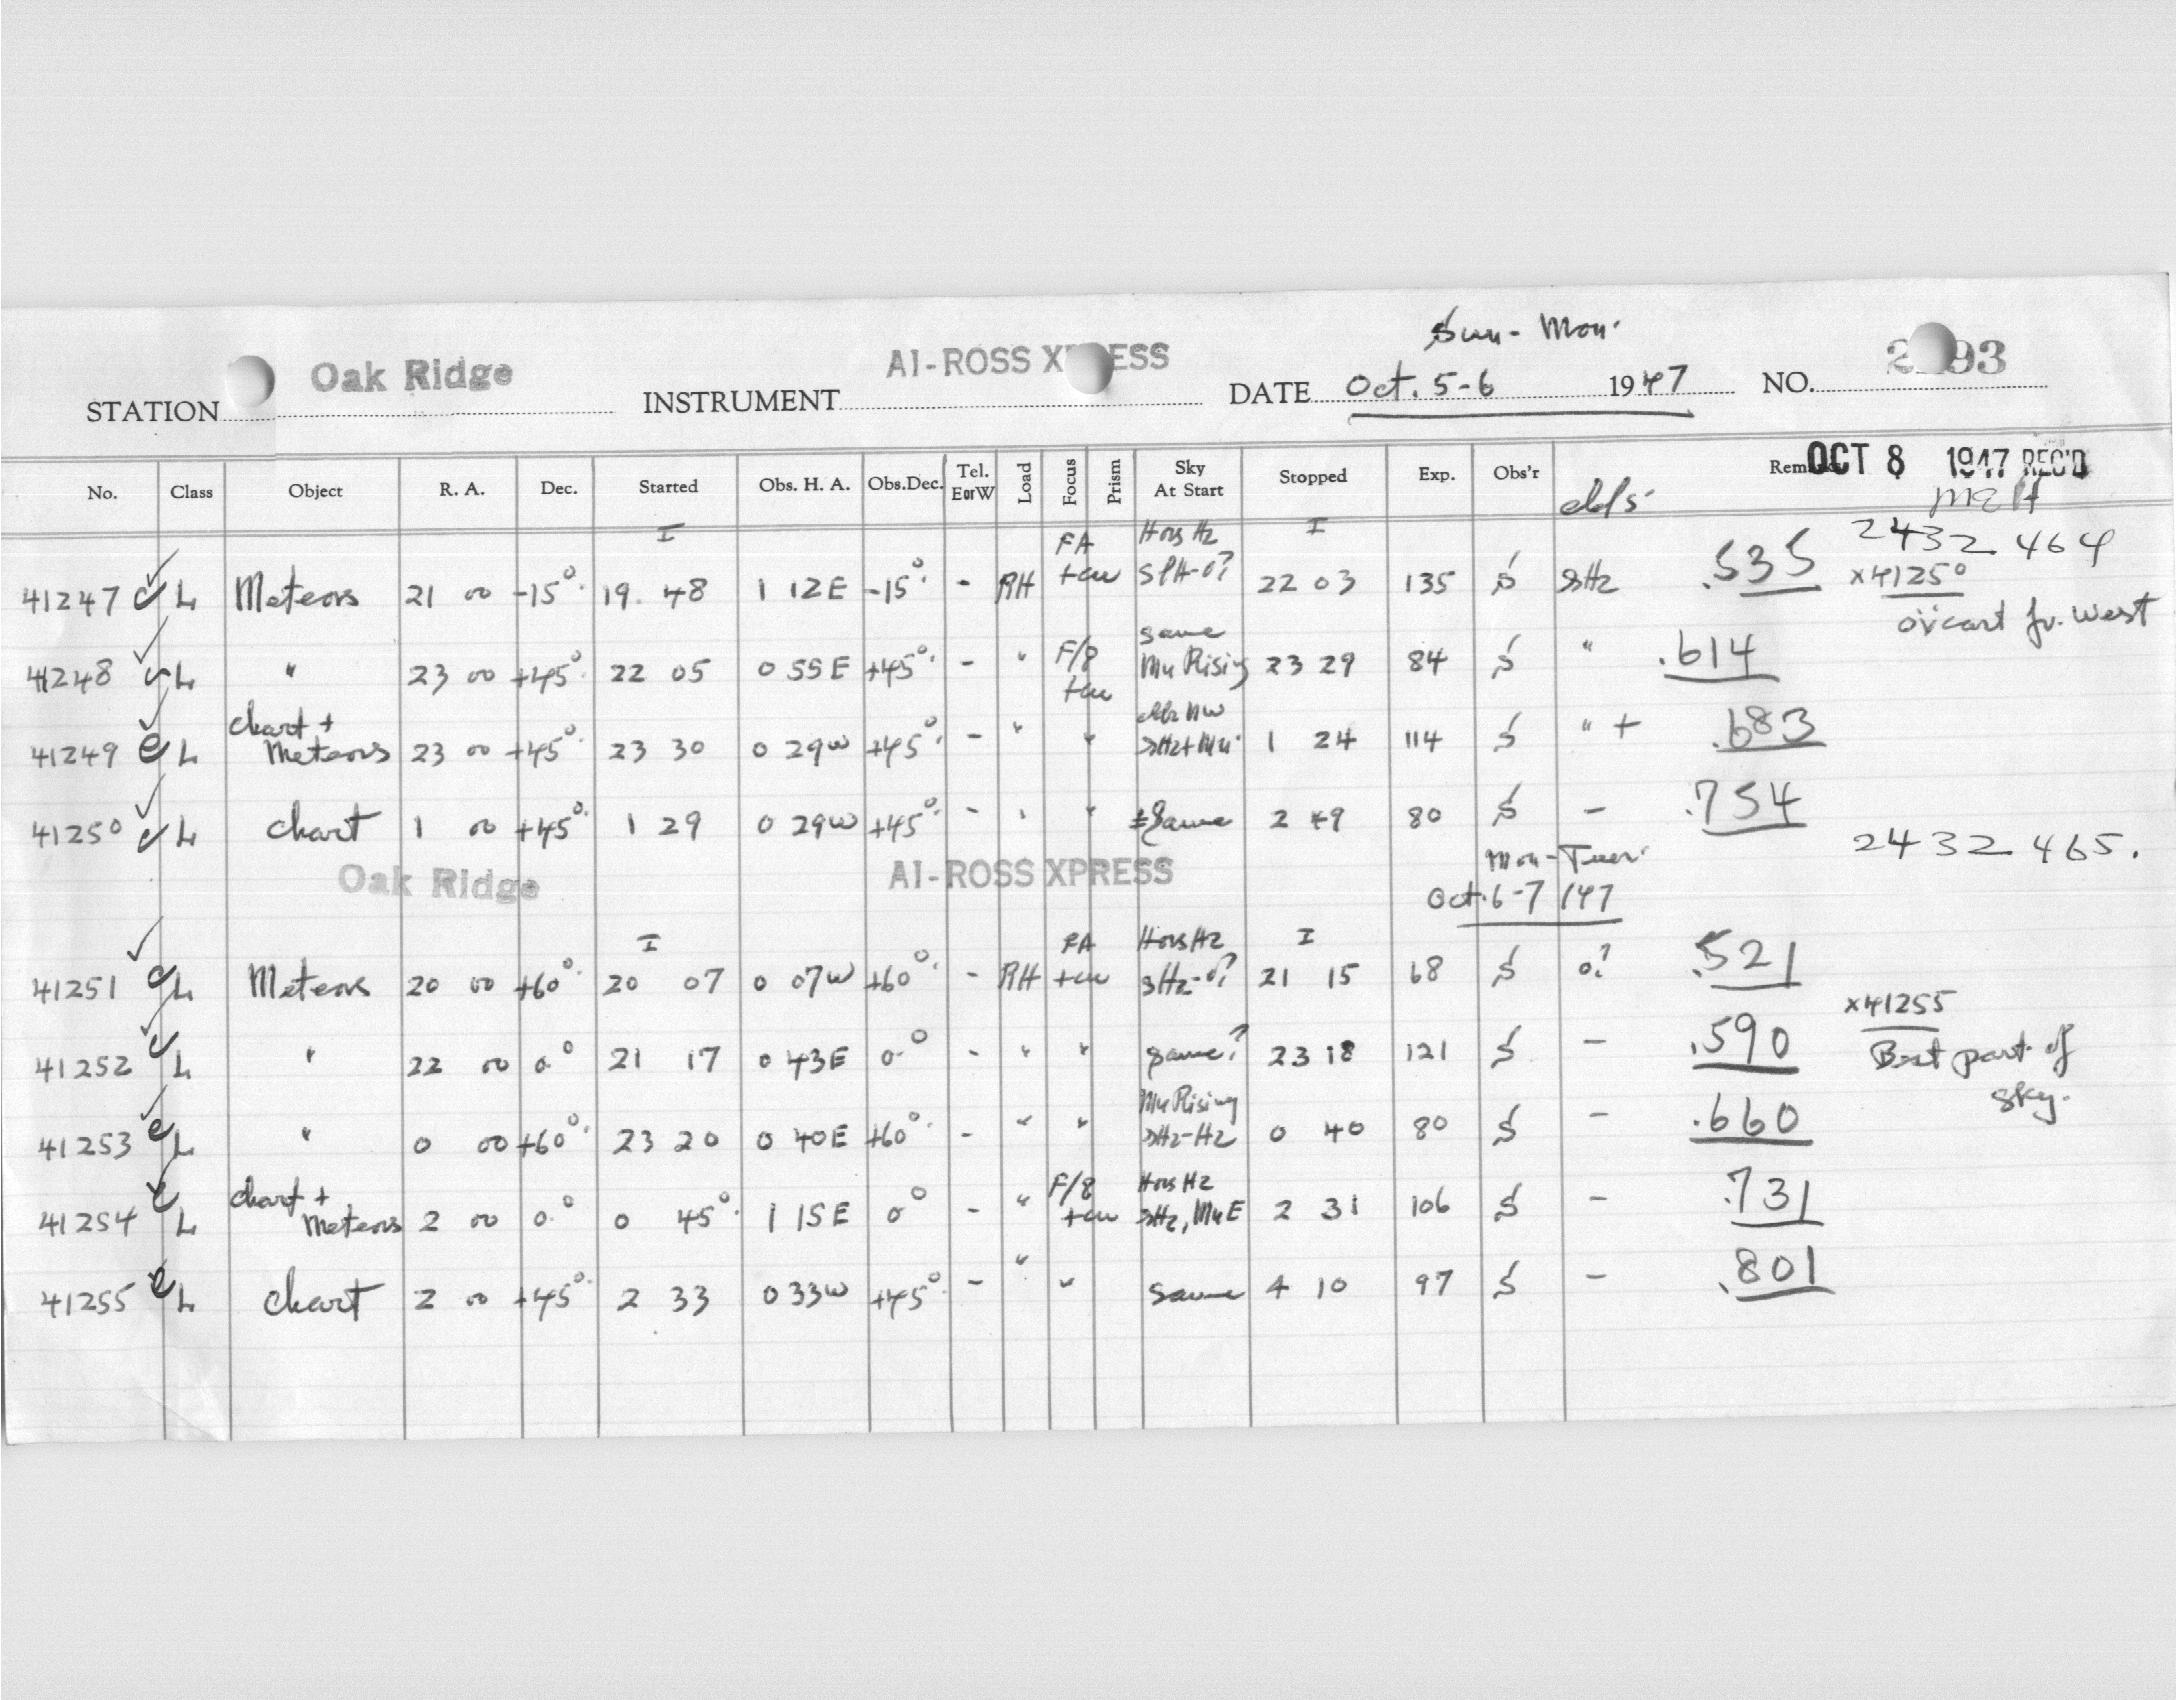 Sun - Mon.
STATION Oak Ridge INSTRUMENT AI-ROSS XPRESS DATE Oct. 5-6 1947 NO. 93
No. Class Object R. A. Dec. Started Obs. H. A. Obs.Dec. Tel. E or W Load Focus Prism Sky At Start Stopped Exp. Obs'r Remarks OCT 8 1947 REC'D
MEH
I FA Hors Hz I 2432 464
41247 L Meteors 21 00 -15°. 19 48 1 12E -15°. - RH 22 03 135 S sHz .535 x41250
fr. West
same
41248 L " 23 00 +45°. 22 05 0 55E +45°. - " F/8 Mn Rising 23 29 84 S " .614
chart +
41249 e L Meteors 23 00 +45°. 23 30 0 29W +45°. - " " sHz+Mn. 1 24 114 S " + .683
41250 L chart 1 00 +45°. 1 29 0 29W +45°. - " " Same 2 49 80 S - .754
2432 465.
Mon - Tues.
Oak Ridge AI-ROSS XPRESS Oct. 6-7 1947
I FA Hors Hz I
41251 L Meteors 20 00 +60°. 20 07 0 07W +60°. - RH sHz-0? 21 15 68 S 0? .521
x41255
41252 L " 22 00 0.° 21 17 0 43E 0.° - " " same? 23 18 121 S - .590 Best part of
sky.
Mn Rising
41253 e L " 0 00 +60°. 23 20 0 40E +60°. - " " sHz-Hz 0 40 80 S - .660
chart + F/8 Hors Hz
41254 e L Meteors 2 00 0.° 0 45°. 1 15E 0° - " sHz, Mn E 2 31 106 S - .731
41255 e L chart 2 00 +45°. 2 33 0 33W +45° - " " Same 4 10 97 S - .801